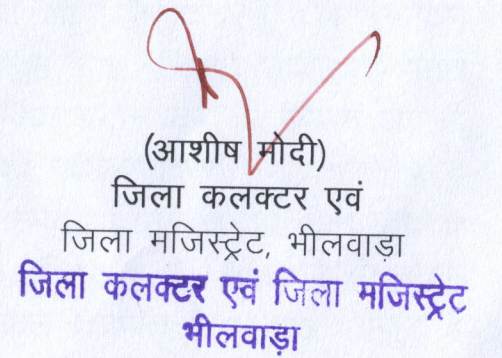 (आशीष मोदी)
जिला कलक्टर एवं
जिला मजिस्ट्रेट, भीलवाड़ा
जिला कलक्टर एवं जिला मजिस्ट्रेट
भीलवाड़ा